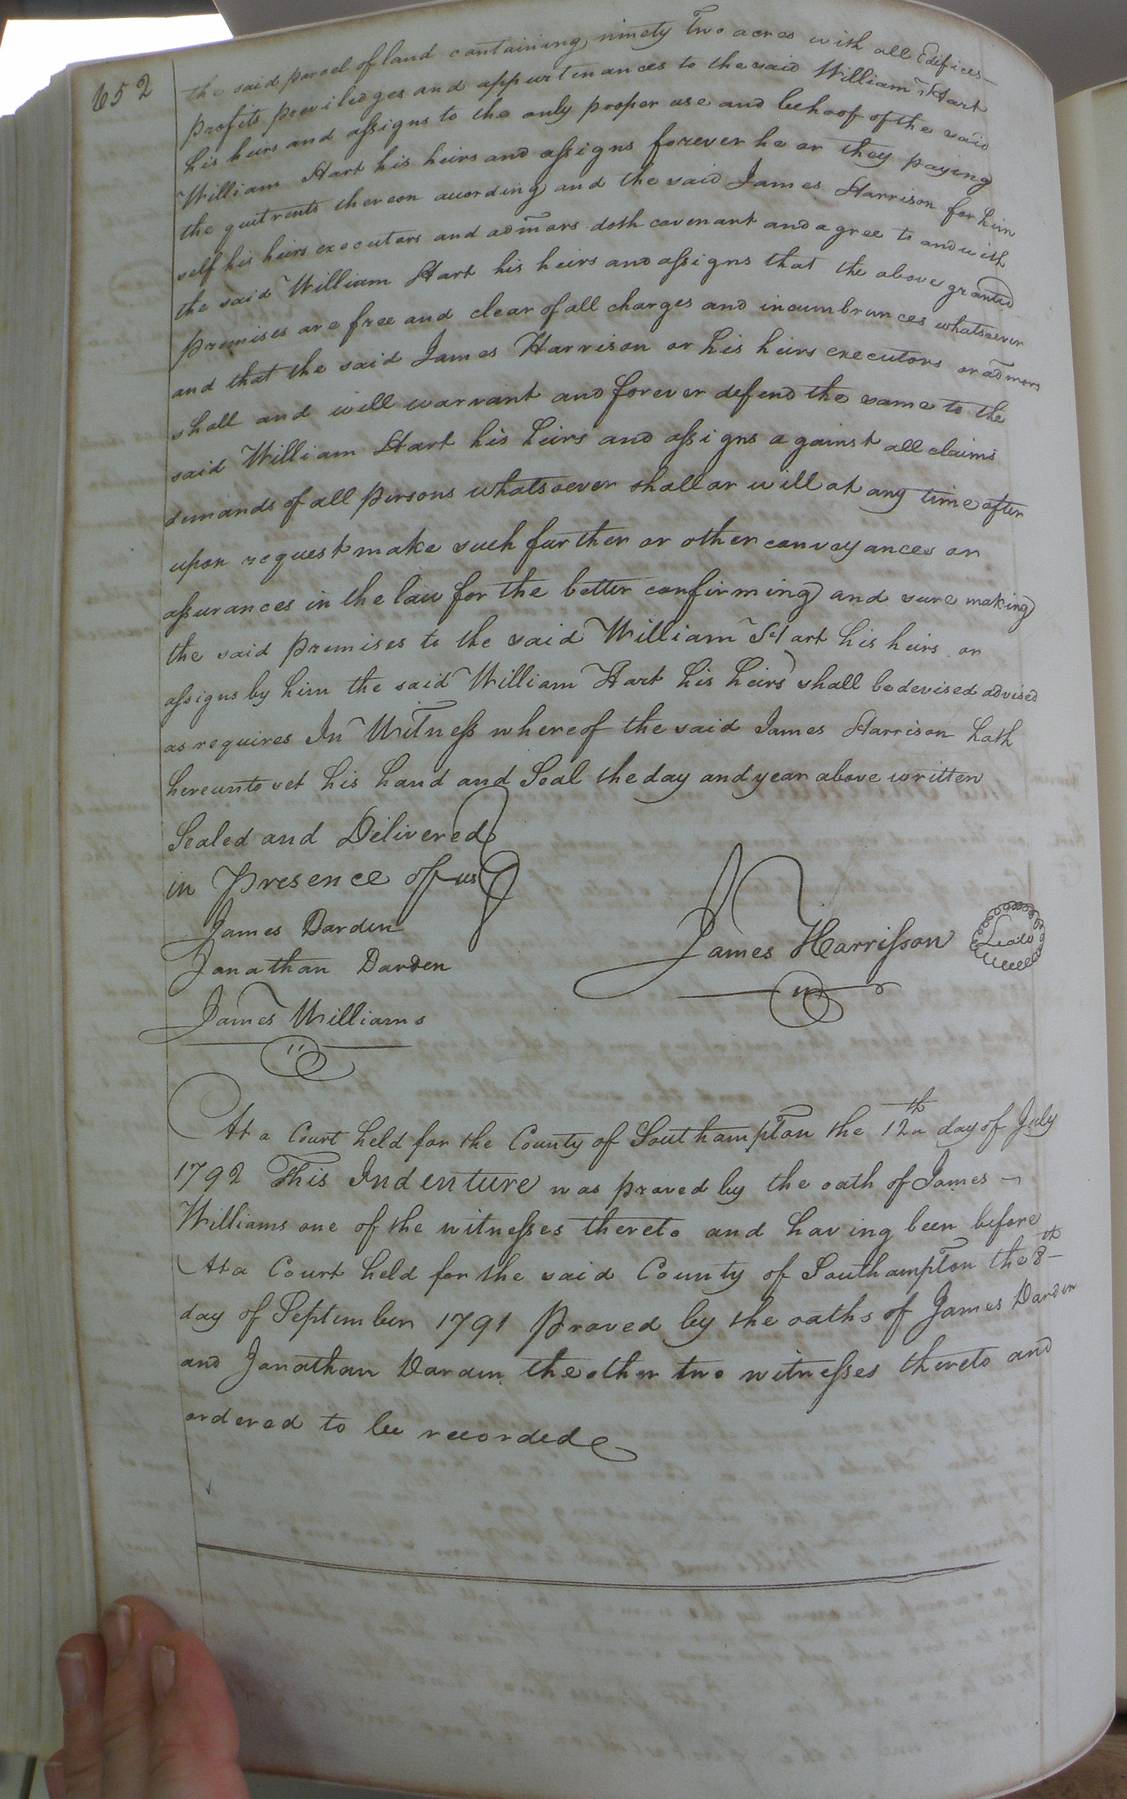 652
the said parcel of land containing ninety two acres with all Edifices
profits priviledges and appurtenances to the said William Hart
his heirs and assigns to the only proper use and behoof of the said
William Hart his heirs and assigns forever he or they paying
the quitrents thereon according and the said James Harrison for him
self his heirs executors and admors doth covenant and agree to and with
the said William Hart his heirs and assigns that the above granted
premises are free and clear of all charges and incumbrances whatsoever
and that the said James Harrison or his heirs executors or admors
shall and will warrant and forever defend the same to the
said William Hart his heirs and assigns against all claims
demands of all persons whatsoever shall or will at any time after
upon request make such further or other conveyances or
assurances in the law for the better confirming and sure making
the said premises to the said William Hart his heirs or
assigns by him the said William Hart his heirs shall be devised advised
as requires In Witness whereof the said James Harrison hath
hereunto set his hand and Seal the day and year above written
Sealed and Delivered
in Presence of us
James Darden
Jonathan Darden
James Williams
James Harrison
At a Court held for the County of Southampton the 12th day of July
1792 This Indenture was proved by the oath of James
Williams one of the witnesses thereto and having been before
At a Court held for the said County of Southampton the 8th
day of September 1791 Proved by the oaths of James Darden
and Jonathan Darden the other two witnesses thereto and
ordered to be recorded